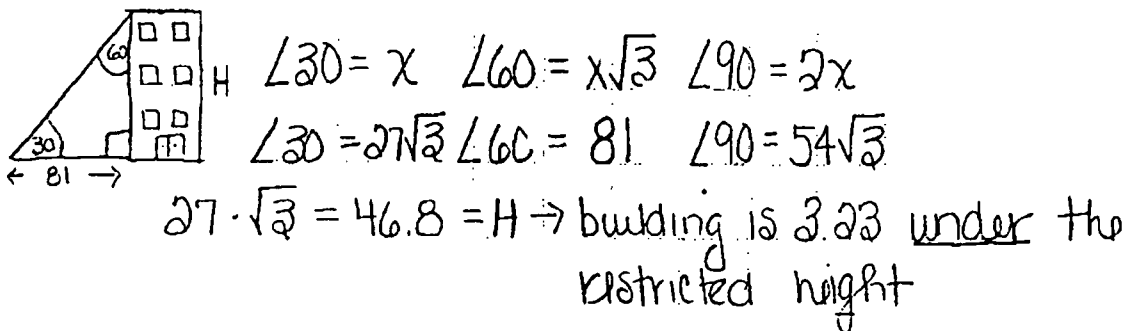 60
H
∠30 = x ∠60 = x√3 ∠90 = 2x
30
81
∠30 = 27√3 ∠60 = 81 ∠90 = 54√3
27 · √3 = 46.8 = H → building is 3.23 under the
restricted height